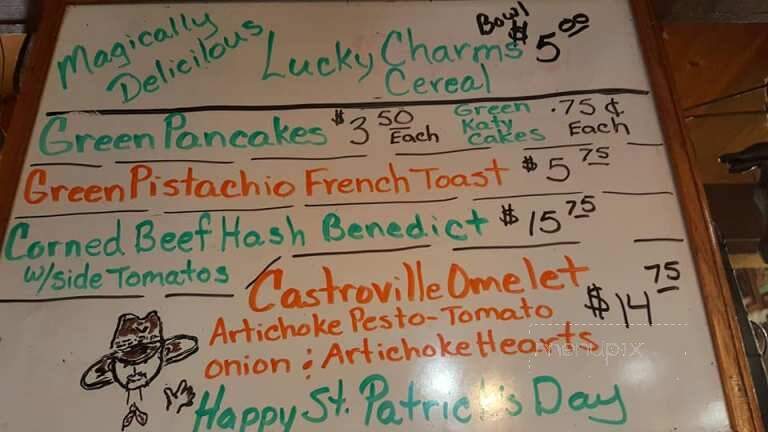 Magically Delicilous Lucky Charms Cereal Bowl $5 00
Green Pancakes $3 50 Each Green Katy Cakes .75 ¢ Each
Green Pistachio French Toast $5 75
Corned Beef Hash Benedict $15 75
w/side Tomatos
Castroville Omelet $14 75
Artichoke Pesto-Tomato
onion & Artichoke Hearts
Happy St. Patrick's Day
menupix